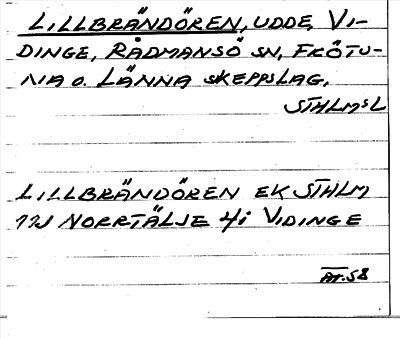 LILLBRÄNDÖREN, UDDE, VI-
DINGE, RÅDMANSÖ SN, FRÖTU-
NA O. LÄNNA SKEPPSLAG,
STHLMS L
LILLBRÄNDÖREN EK STHLM
NORRTÄLJE 4i VIDINGE